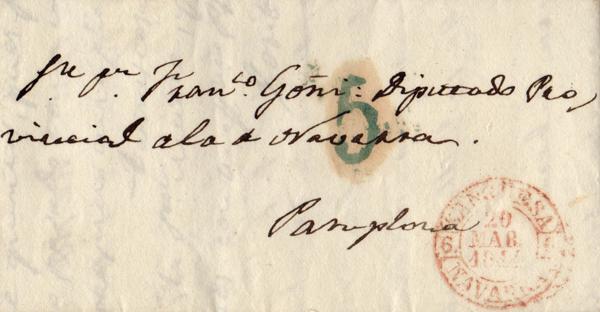 Sr. Dn. Franco. Goñi: Diputado Pro,
vincial a la de Navarra.
5
Pamplona
SANGUESA
20
MAR
184
6 6
NAVARRA